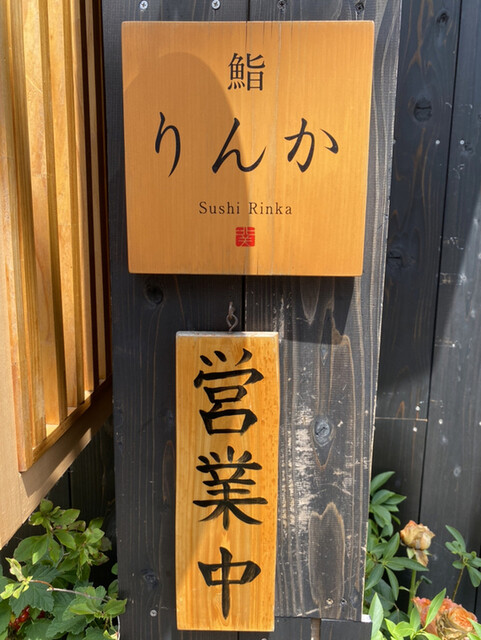 鮨
りんか
Sushi Rinka
営業中